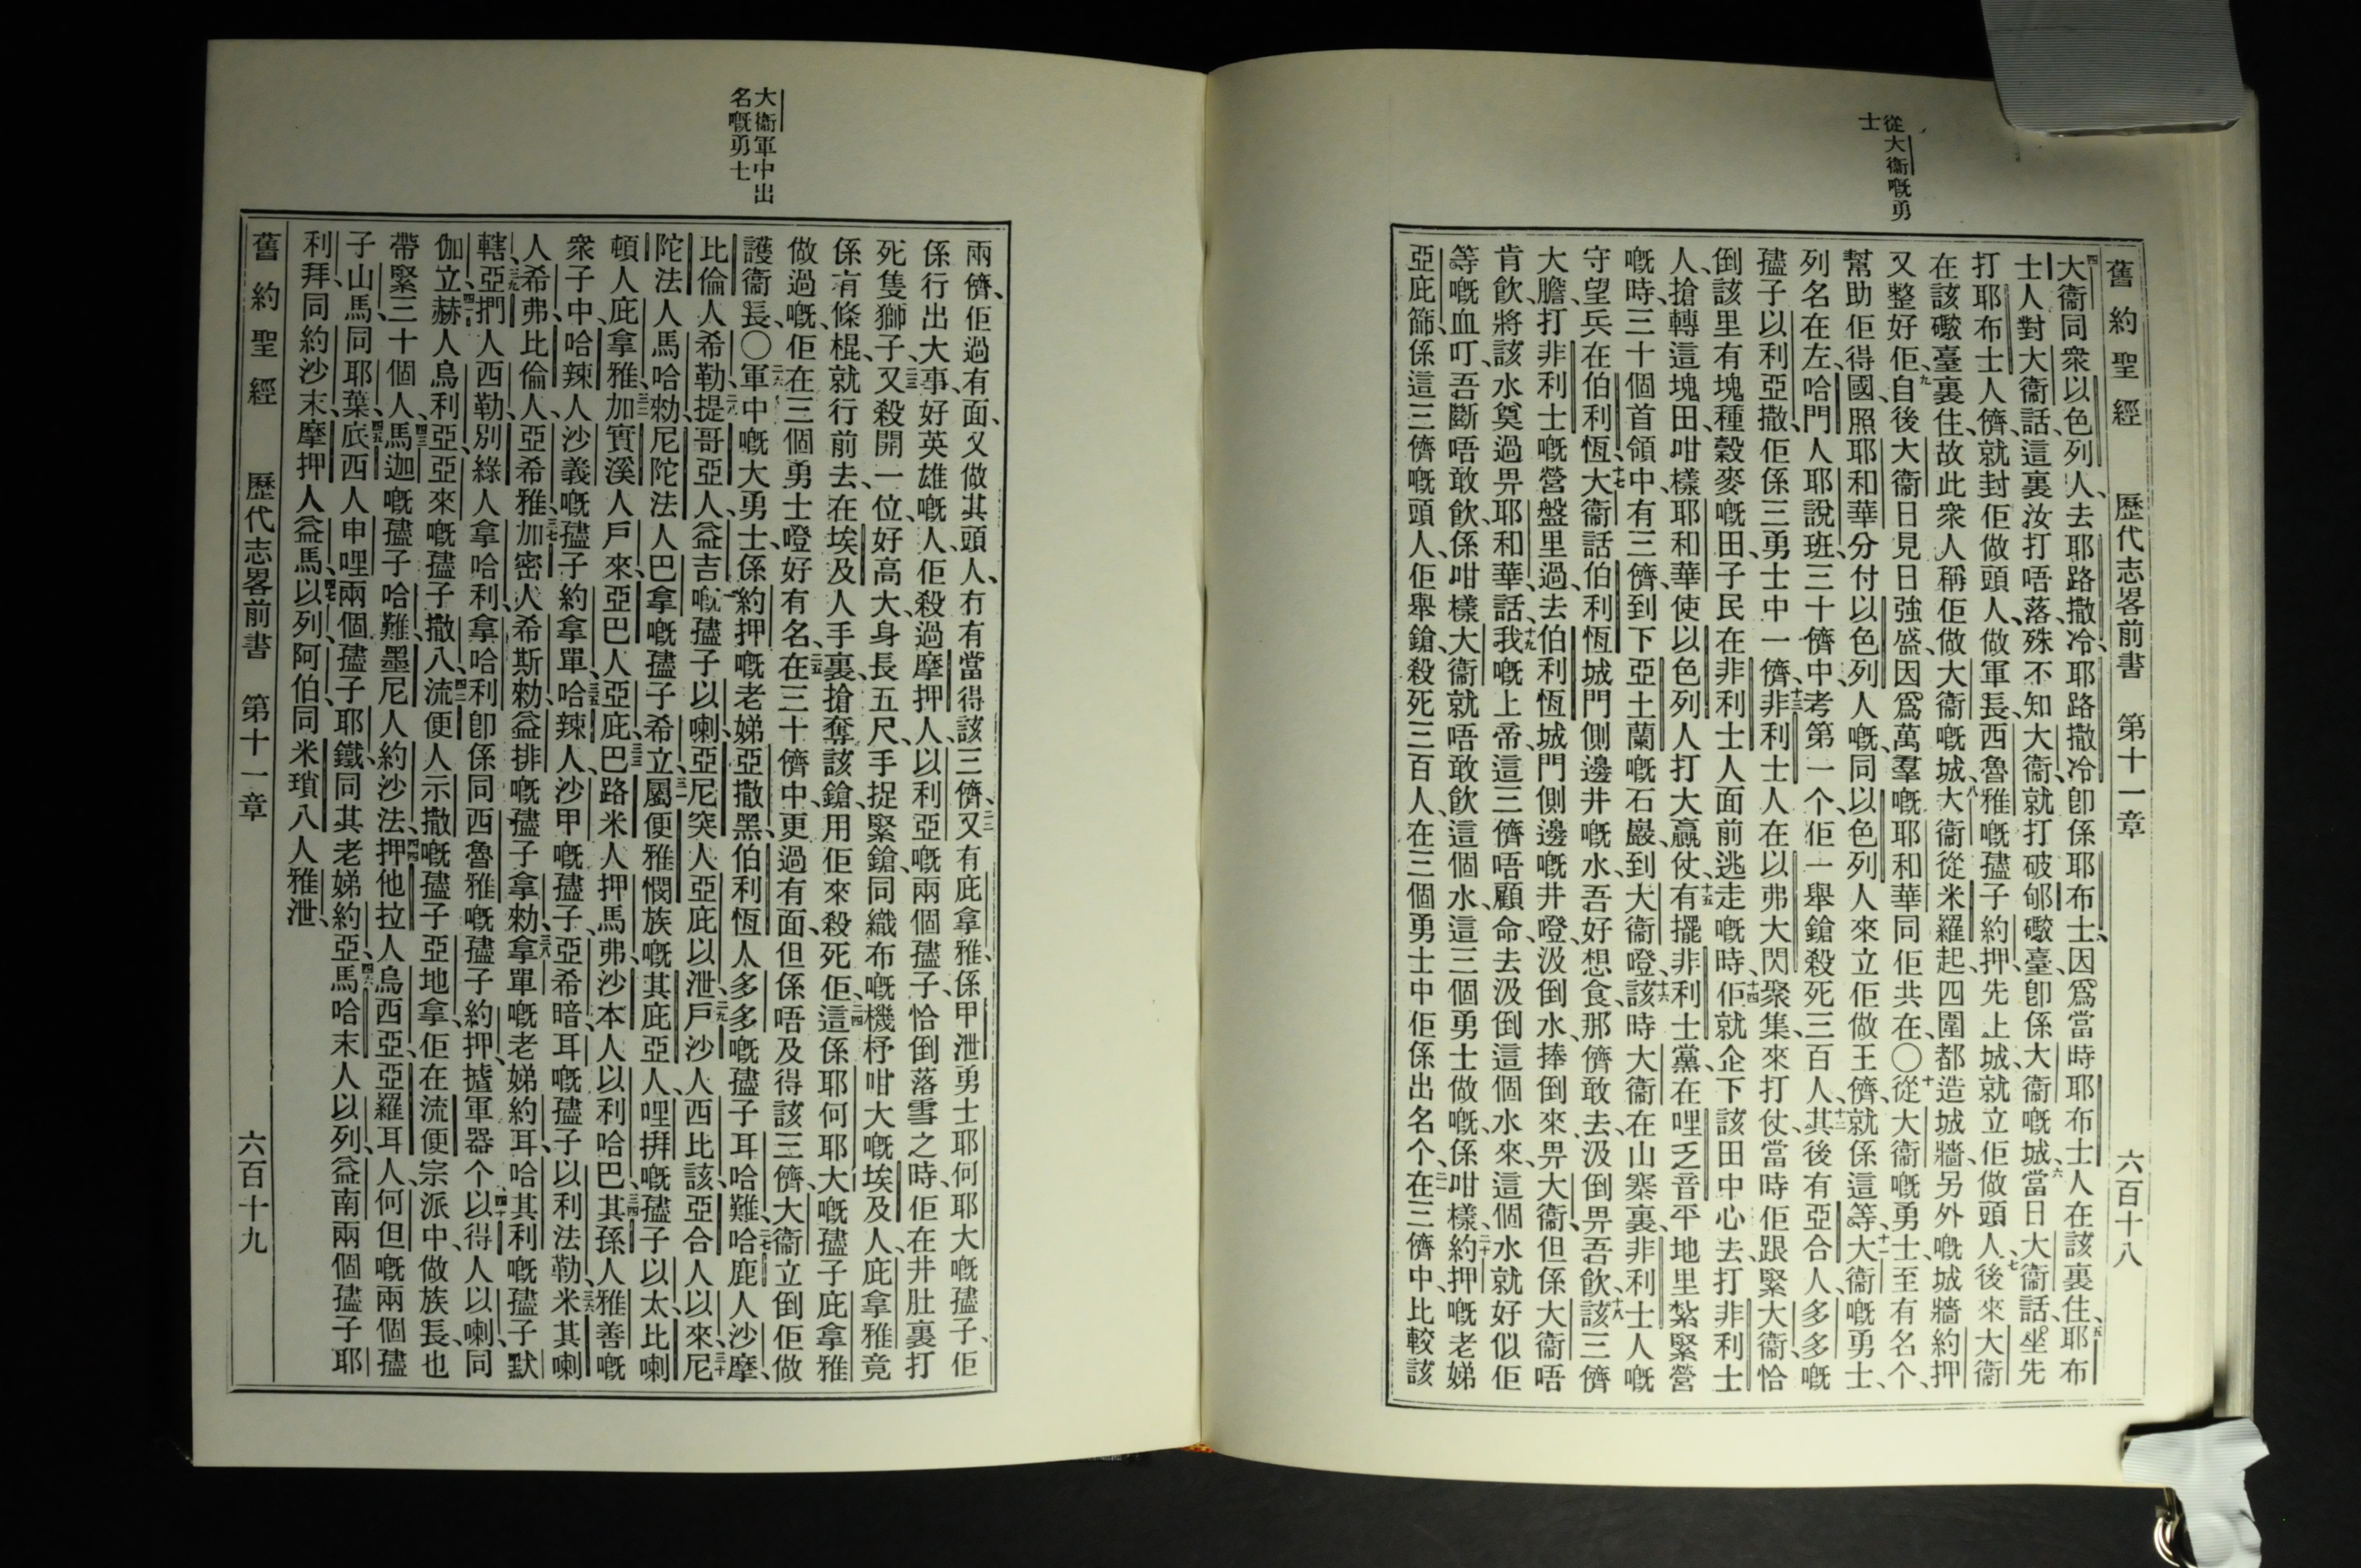 從大衞嘅勇
士
舊約聖經 歷代志畧前書 第十一章 六百十八
四大衞同衆以色列人、去耶路撒冷、耶路撒冷卽係耶布士、因爲當時耶布士人在該裏住、五耶布
士人對大衞話、這裏汝打唔落、殊不知大衞、就打破郇礮臺、卽係大衞嘅城、六當日大衞話、坐先
打耶布士人儕、就封佢做頭人、做軍長、西魯雅嘅孻子約押、先上城、就立佢做頭人、七後來大衞
在該礮臺裏住、故此衆人稱佢做大衞嘅城、八大衞從米羅起、四圍都造城牆、另外嘅城牆、約押
又整好佢、九自後大衞日見日強盛、因爲萬羣嘅耶和華同佢共在、〇十從大衞嘅勇士、至有名个、
幫助佢得國、照耶和華分付以色列人嘅、同以色列人來立佢做王儕、就係這等、十一大衞嘅勇士、
列名在左、哈門人耶說班、三十儕中、考第一个、佢一舉鎗殺死三百人、十二其後有亞合人、多多嘅
孻子以利亞撒、佢係三勇士中一儕、十三非利士人在以弗大閃聚集、來打仗、當時佢跟緊大衞、恰
倒該里有塊種穀麥嘅田、子民在非利士人面前逃走嘅時、十四佢就企下該田中心、去打非利士
人、搶轉這塊田、咁樣耶和華使以色列人打大贏仗、十五有擺非利士黨、在哩乏音平地里紮緊營
嘅時、三十個首領中、有三儕到下亞土蘭嘅石巖、到大衞嶝、十六該時大衞在山寨裏、非利士人嘅
守望兵在伯利恆、十七大衞話、伯利恆城門側邊井嘅水、吾好想食、那儕敢去汲倒畀吾飲、十八該三儕
大膽、打非利士嘅營盤里過、去伯利恆城門側邊嘅井嶝、汲倒水、捧倒來畀大衞、但係大衞唔
肯飲、將該水奠過畀耶和華、話、十九我嘅上帝、這三儕唔顧命、去汲倒這個水來、這個水就好似佢
等嘅血叮、吾斷唔敢飲、係咁樣大衞就唔敢飲這個水、這三個勇士做嘅、係咁樣、二十約押嘅老娣
亞庇篩、係這三儕嘅頭人、佢舉鎗、殺死三百人、在三個勇士中佢係出名个、在三儕中、比較該
大衞軍中出
名嘅勇士
兩儕、佢過有面、又做其頭人、冇有當得該三儕、二二又有庇拿雅、係甲泄勇士耶何耶大嘅孻子、佢
係行出大事、好英雄嘅人、佢殺過摩押人、以利亞嘅兩個孻子、恰倒落雪之時、佢在井肚裏打
死隻獅子、二三又殺開一位好高大、身長五尺、手捉緊鎗、同織布嘅機杼咁大嘅埃及人、庇拿雅竟
係冇條棍、就行前去、在埃及人手裏、搶奪該鎗、用佢來殺死佢、二四這係耶何耶大嘅孻子庇拿雅
做過嘅、佢在三個勇士嶝好有名、二五在三十儕中、更過有面、但係唔及得該三儕、大衞立倒佢做
護衞長、〇二六軍中嘅大勇士、係約押嘅老娣亞撒黑、伯利恆人多多嘅孻子耳哈難、二七哈鹿人沙摩、
比倫人希勒、二八提哥亞人、益吉嘅孻子以喇、亞尼突人亞庇以泄、二九戶沙人西比該、亞合人以來、三十尼
陀法人馬哈勑、尼陀法人巴拿嘅孻子希立、三一屬便雅憫族嘅其庇亞人、哩拜嘅孻子以太、比喇
頓人庇拿雅、三二加實溪人戶來、亞巴人亞庇、三三巴路米人押馬弗、沙本人以利哈巴、三四其孫人雅善嘅
衆子中、哈辣人沙義嘅孻子約拿單、三五哈辣人、沙甲嘅孻子亞希暗、耳嘅孻子以利法勒、三六米其喇
人希弗、比倫人、亞希雅、三七加密人希斯勑、益排嘅孻子拿勑、三八拿單嘅老娣約耳、哈其利嘅孻子默
轄、三九亞捫人西勒、別綠人拿哈利、拿哈利卽係同西魯雅嘅孻子約押、揸軍器个、四十以得人以喇、同
伽立、四一赫人烏利亞、亞來嘅孻子撒八、四二流便人示撒嘅孻子亞地拿、佢在流便宗派中、做族長、也
帶緊三十個人、四三馬迦嘅孻子哈難、墨尼人約沙法、四四押他拉人烏西亞、亞羅耳人、何但嘅兩個孻
子山馬、同耶葉、四五底西人申哩兩個孻子耶鐵、同其老娣約亞、四六馬哈末人以列、益南兩個孻子耶
利拜、同約沙末、摩押人益馬、四七以列、阿伯、同米瑣八人雅泄、
舊約聖經 歷代志畧前書 第十一章 六百十九